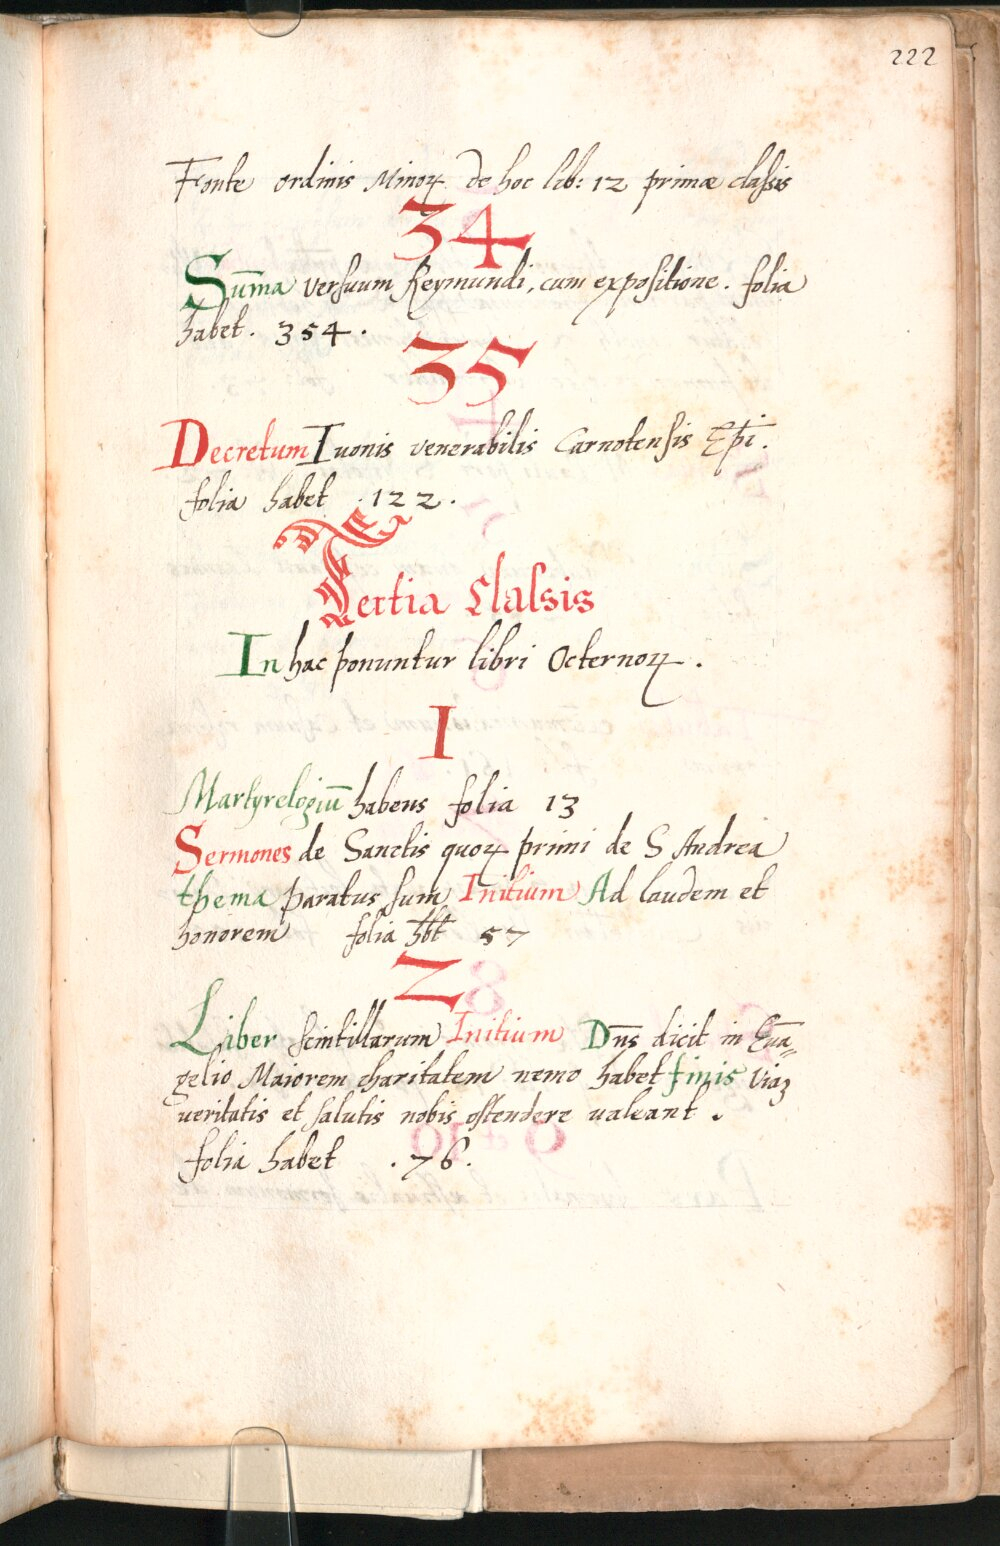 222
Fonte ordinis Minoꝝ de hoc lib: 12 primæ classis
34
Sūma versuum Reymundi, cum expositione. folia
habet. 354.
35
Decretum Iuonis venerabilis Carnotensis Ep̄i.
folia habet .122.
Tertia Classis
In hac ponuntur libri Octernoꝝ.
I
Martyrelogiū habens folia 13
Sermones de Sanctis quoꝝ primi de S Andrea
thema paratus sum Initium Ad laudem et
honorem folia hb̄t 57
2
Liber scintillarum Initium Dn̄s dicit in Euā„
gelio Maiorem charitatem nemo habet finis Viaꝫ
veritatis et salutis nobis ostendere valeant.
folia habet .76.